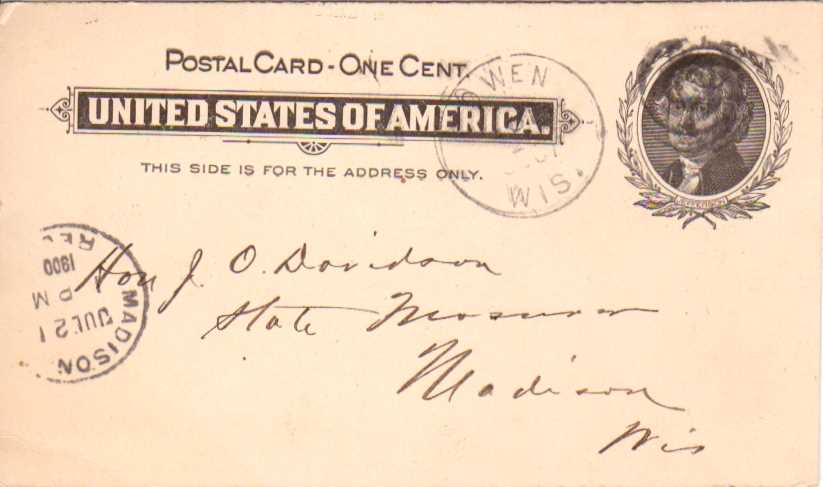 POSTAL CARD - ONE CENT.
UNITED STATES OF AMERICA.
THIS SIDE IS FOR THE ADDRESS ONLY.
OWEN
WIS.
JEFFERSON
MADISON
JUL 21
PM
1900
REC
Hon J. O. Davidson
State
Madison
Wis